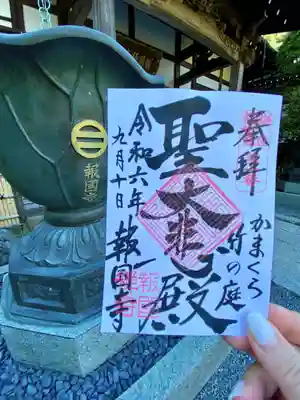 奉拝
かまくら
竹の庭
聖大悲殿
令和六年
九月十日
報國寺
報國寺